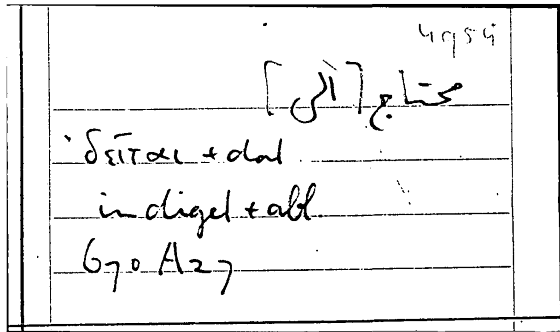 4954
محتاج [الى]
δεῖται + dat
indiget + abl
670 A27